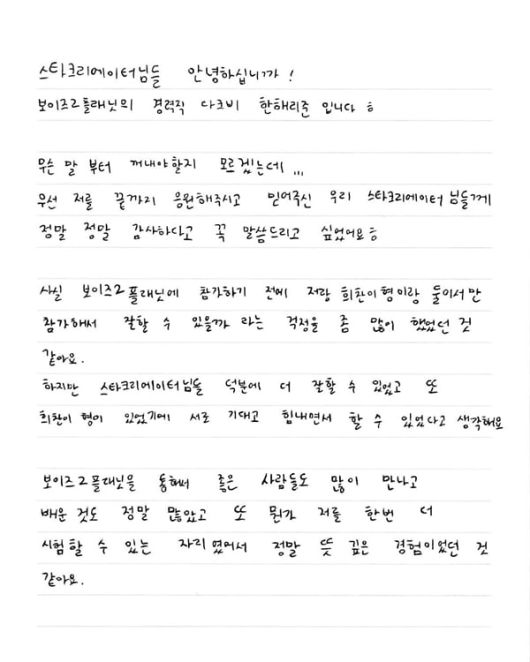 스타크리에이터님들 안녕하십니까!
보이즈2플래닛의 경력직 다크비 해리준 입니다 ㅎ
무슨 말 부터 꺼내야할지 모르겠는데...
우선 저를 끝까지 응원해주시고 믿어주신 우리 스타크리에이터님들께
정말 정말 감사하다고 꼭 말씀드리고 싶었어요ㅎ
사실 보이즈2플래닛에 참가하기 전에 저랑 희찬이형이랑 둘이서만
참가해서 잘할 수 있을까 라는 걱정을 좀 많이 했었던 것
같아요.
하지만 스타크리에이터님들 덕분에 더 잘할 수 있었고 또
희찬이형이 있었기에 서로 기대고 힘내면서 할 수 있었다고 생각해요
보이즈2플래닛을 통해서 좋은 사람들도 많이 만나고
배운 것도 정말 많았고 또 뭔가 저를 한번 더
시험할 수 있는 자리였어서 정말 뜻 깊은 경험이었던 것
같아요.